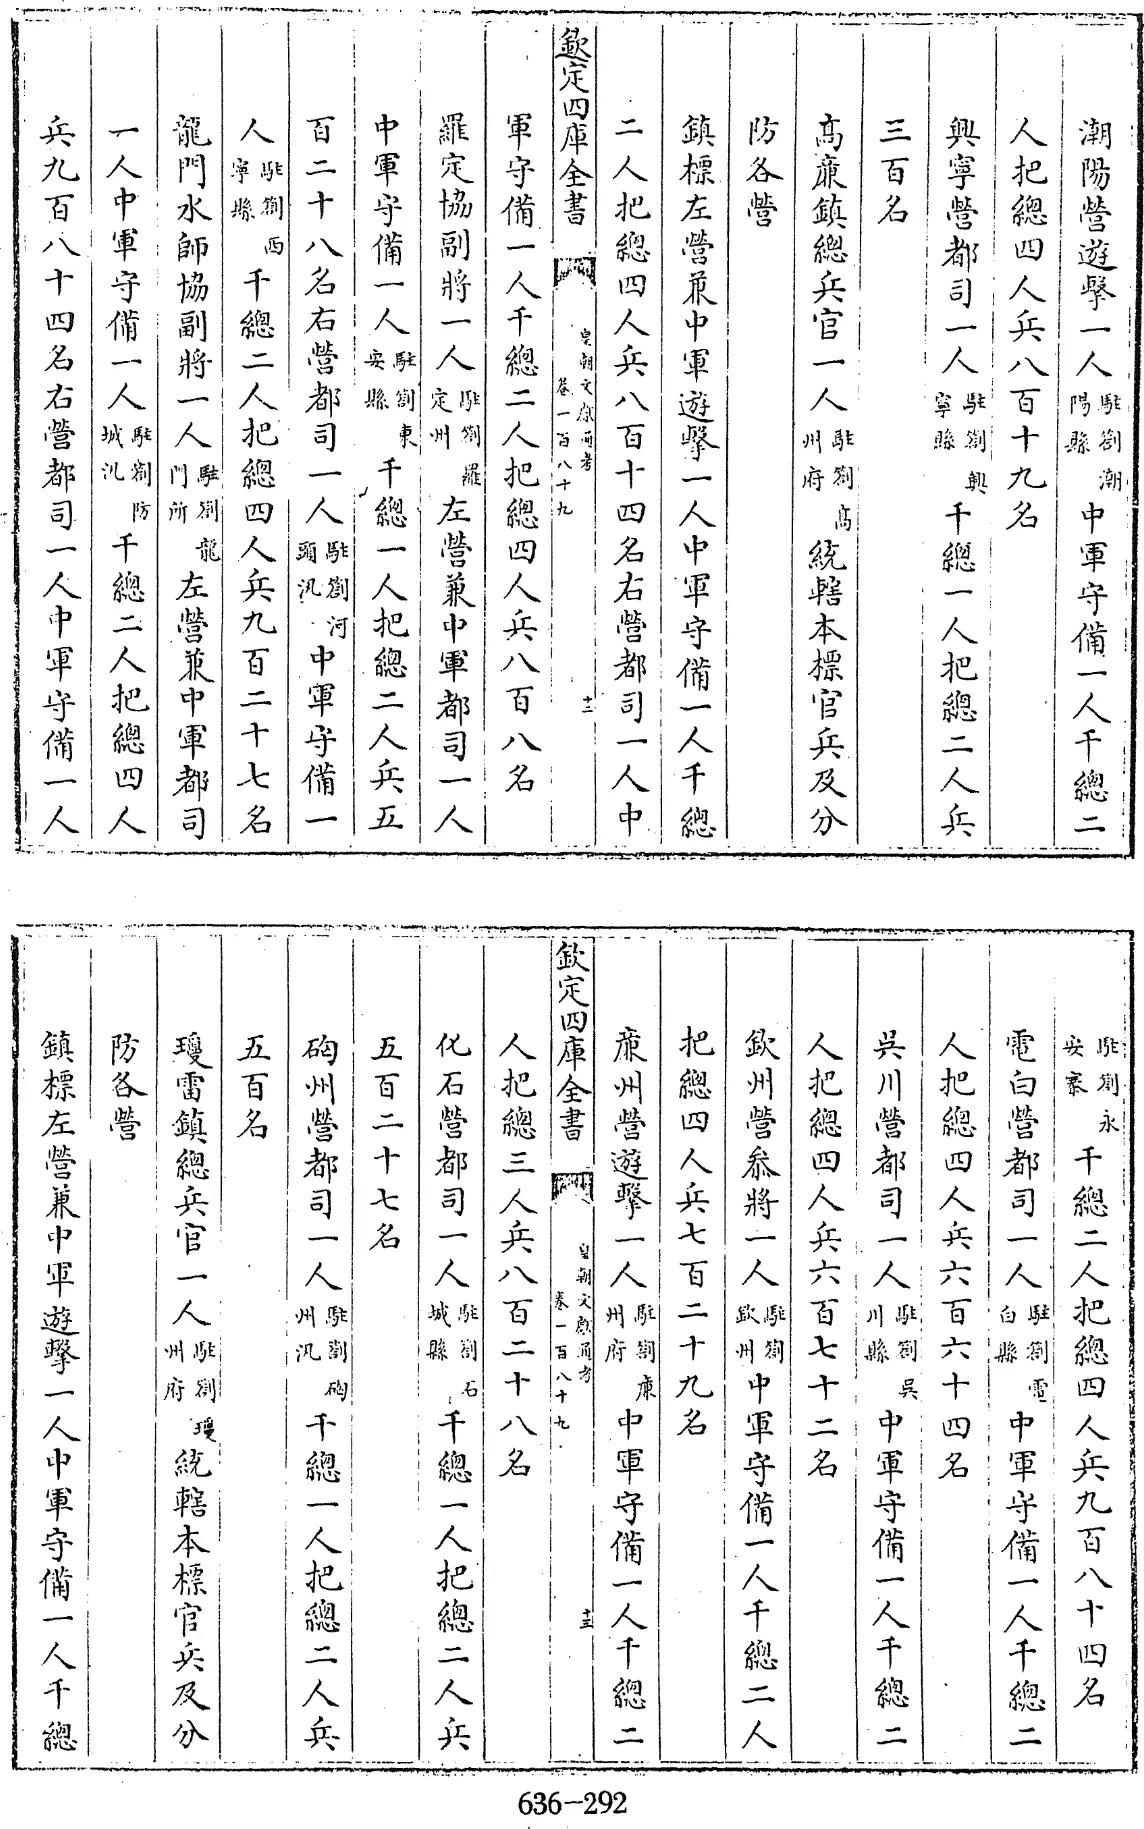 潮陽營遊擊一人駐劄潮陽縣中軍守備一人千總二
人把總四人兵八百十九名
興寧營都司一人駐劄興寧縣千總一人把總二人兵
三百名
髙廉鎮總兵官一人駐劄髙州府統轄本標官兵及分
防各營
鎮標左營兼中軍遊擊一人中軍守備一人千總
二人把總四人兵八百十四名右營都司一人中
欽定四庫全書
皇朝文獻通考
卷一百八十九
十二
軍守備一人千總二人把總四人兵八百八名
羅定協副將一人駐劄羅定州左營兼中軍都司一人
中軍守備一人駐劄東安縣千總一人把總二人兵五
百二十八名右營都司一人駐劄河頭汛中軍守備一
人駐劄西寧縣千總二人把總四人兵九百二十七名
龍門水師協副將一人駐劄龍門所左營兼中軍都司
一人中軍守備一人駐劄防城汛千總二人把總四人
兵九百八十四名右營都司一人中軍守備一人
駐劄永安寨千總二人把總四人兵九百八十四名
電白營都司一人駐劄電白縣中軍守備一人千總二
人把總四人兵六百六十四名
吳川營都司一人駐劄吳川縣中軍守備一人千總二
人把總四人兵六百七十二名
欽州營叅將一人駐劄欽州中軍守備一人千總二人
把總四人兵七百二十九名
亷州營遊擊一人駐劄亷州府中軍守備一人千總二
欽定四庫全書
皇朝文獻通考
卷一百八十九
十三
人把總三人兵八百二十八名
化石營都司一人駐劄石城縣千總一人把總二人兵
五百二十七名
硇州營都司一人駐劄硇州汛千總一人把總二人兵
五百名
瓊雷鎮總兵官一人駐劄瓊州府統轄本標官兵及分
防各營
鎮標左營兼中軍遊擊一人中軍守備一人千總
636-292